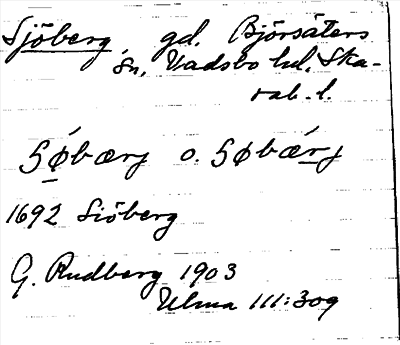 Sjöberg, gd. Björsäters
sn, Vadsbo hd. Ska-
rab. l.
Sǿbærj o. Søbǽrj
1692 Siöberg
G. Rudberg 1903
Ulma 111:309